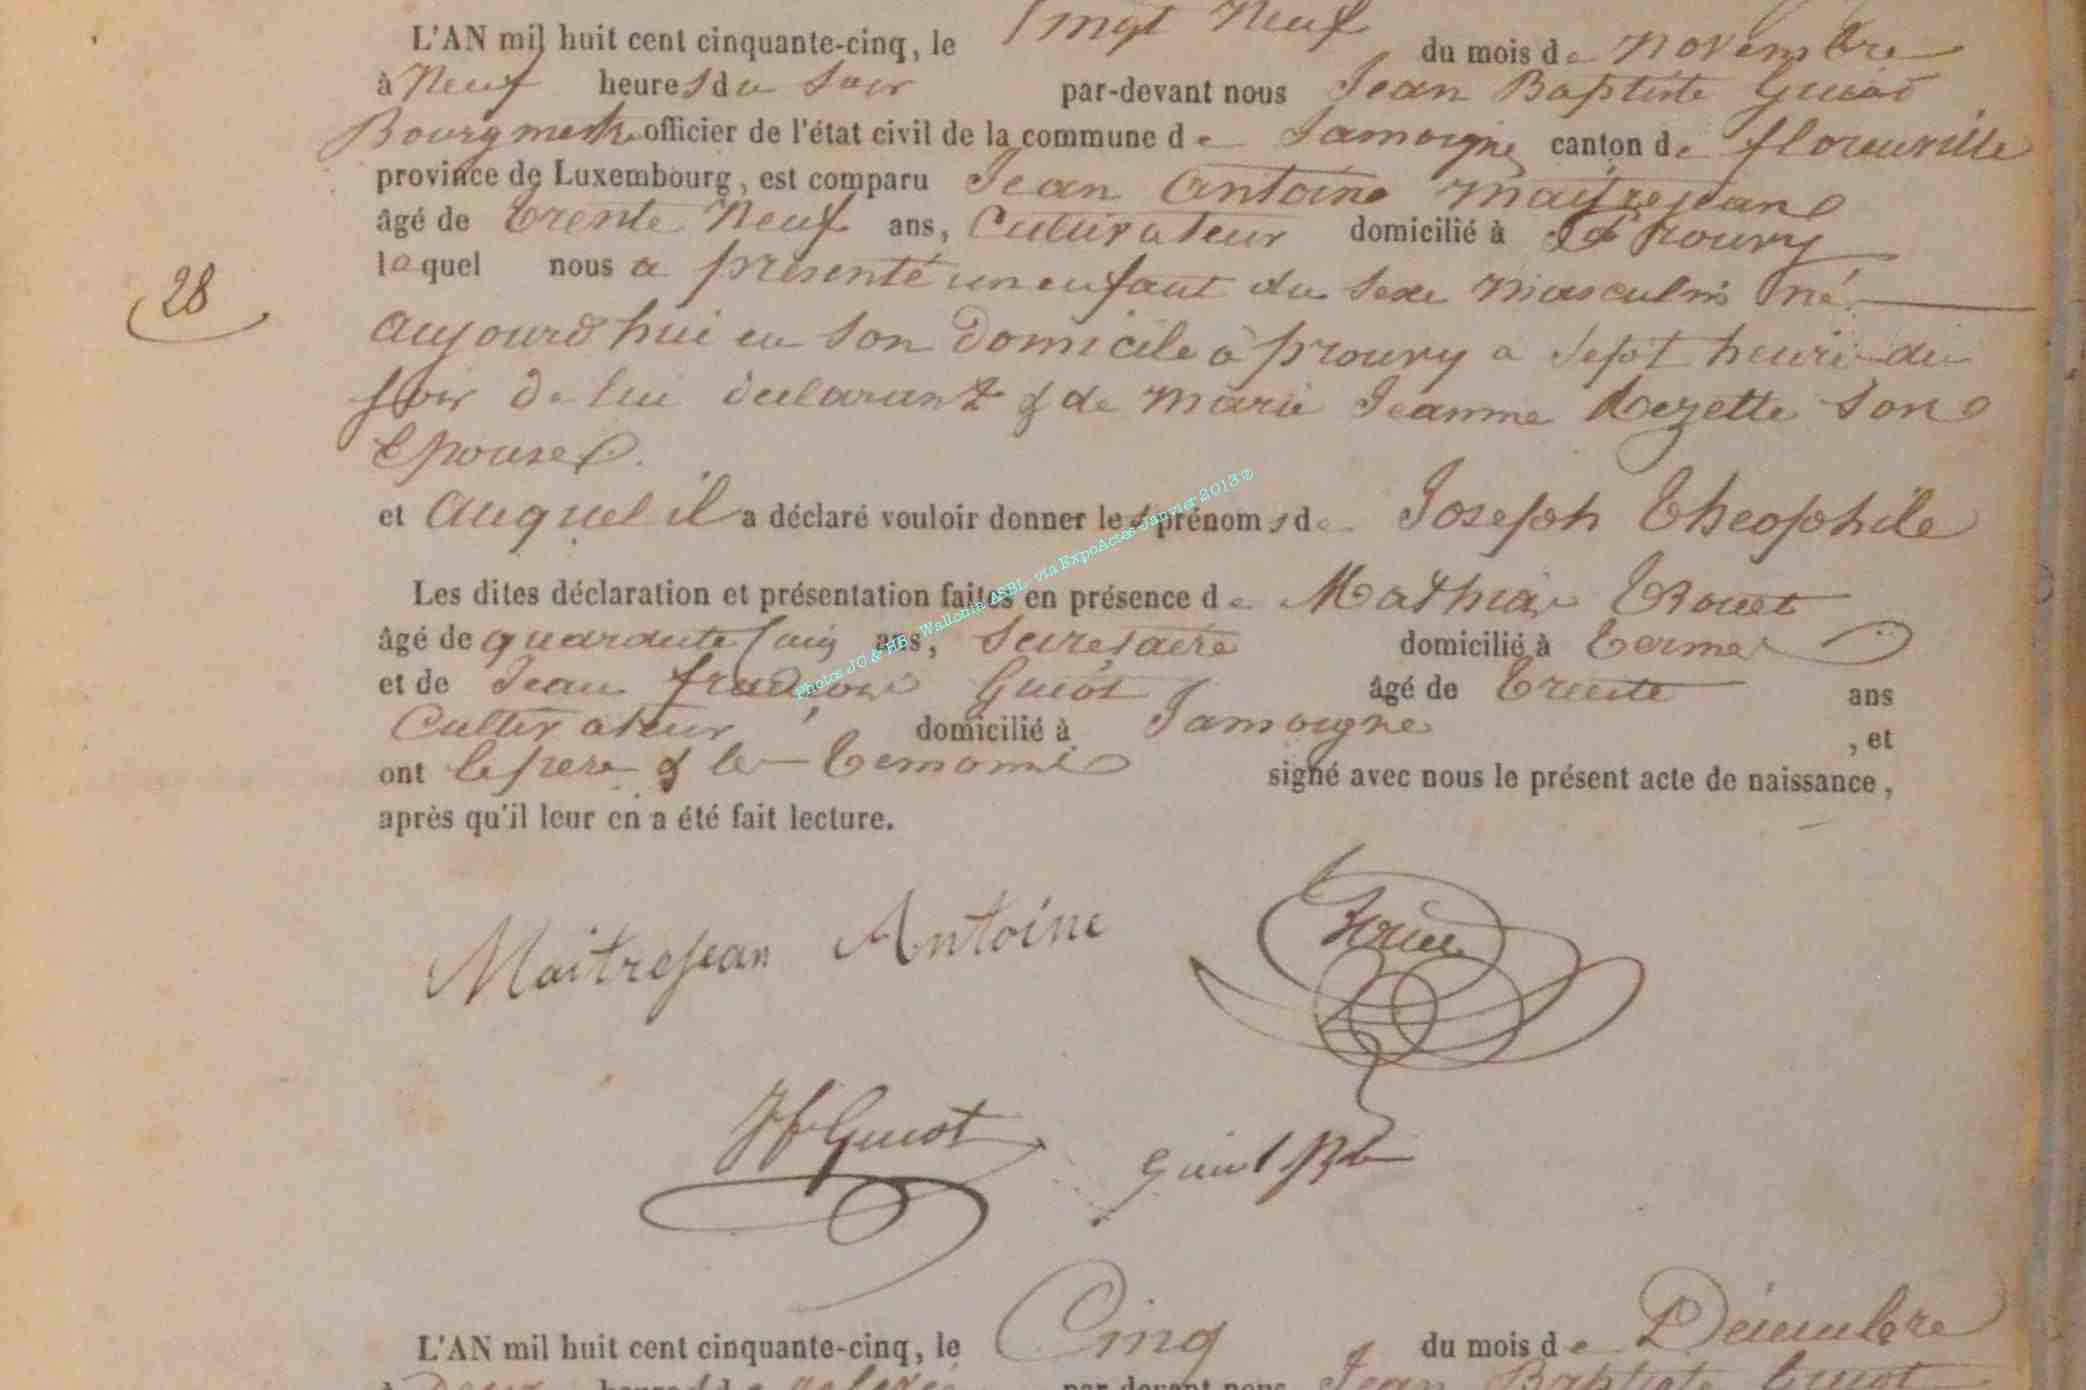 L'AN mil huit cent cinquante-cinq, le Vingt Neuf du mois de Novembre
à Neuf heures du Soir par-devant nous Jean Baptiste Guiot
Bourgmestre officier de l'état civil de la commune de Jamoigne canton de florenville
province de Luxembourg, est comparu Jean Antoine Maitrejean
âgé de trente Neuf ans, Cultivateur domicilié à Prouvy
lequel nous a présenté un enfant du sexe masculin né
aujourd'hui en son domicile à prouvy a Sept heures du
soir de lui déclarant & de Marie Jeanne Lozette son
épouse.
et auquel il a déclaré vouloir donner les prénoms de Joseph Theophile
Les dites déclaration et présentation faites en présence de Mathias
28
âgé de quarante cinq ans, Secretaire domicilié à termes
et de Jean Guiot âgé de trente ans
Cultivateur domicilié à Jamoigne , et
ont le pere & les temoins signé avec nous le présent acte de naissance,
après qu'il leur en a été fait lecture.
Photos JO & HB - Wallonia ASBL via ExpoActes Janvier 2013 ©
Maitrejean Antoine
Guiot
Guiot JB
L'AN mil huit cent cinquante-cinq, le Cinq du mois de Décembre
à Deux heures de relevée par-devant nous Jean Baptiste Guiot